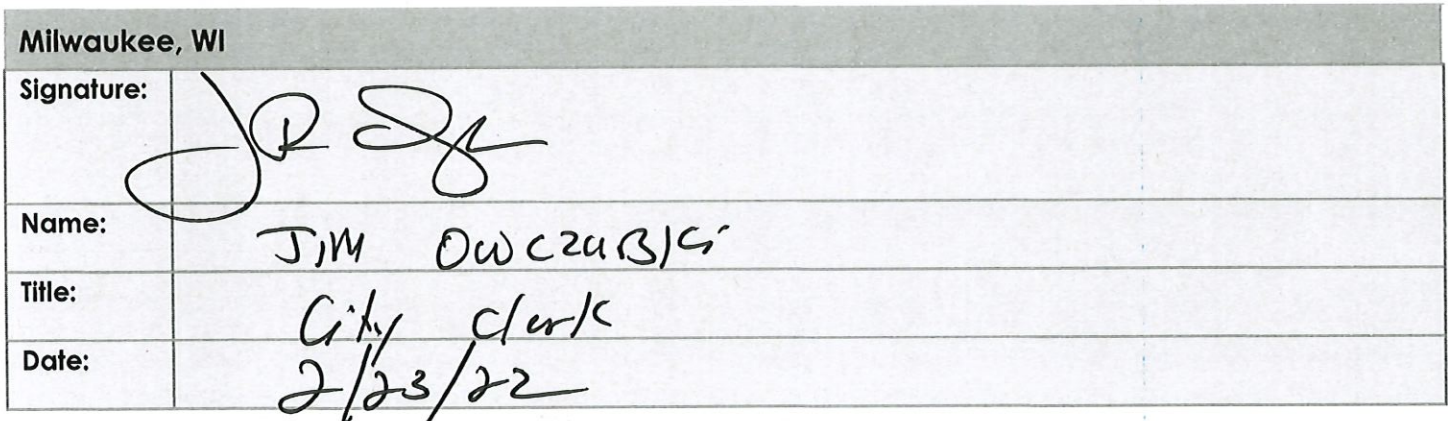 Milwaukee, WI
Signature:
Name: JIM OWCZARSKI
Title: City Clerk
Date: 2/23/22